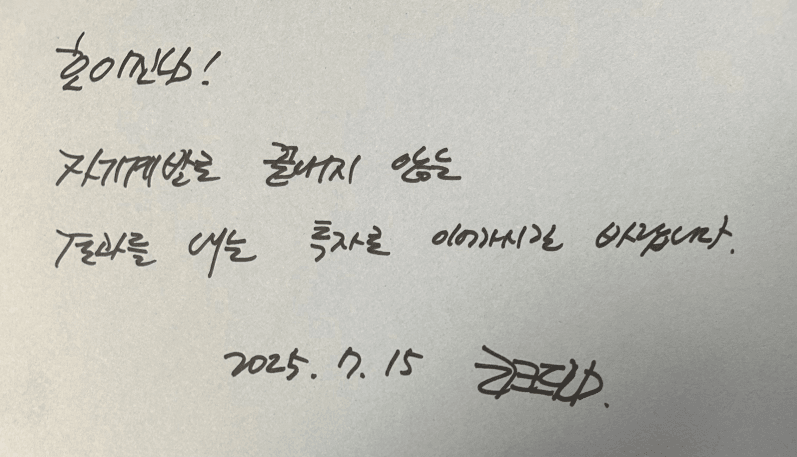 자기계발로 끝내지 않는
결과를 내는 투자로 이어가시길 바랍니다.
2025. 7. 15